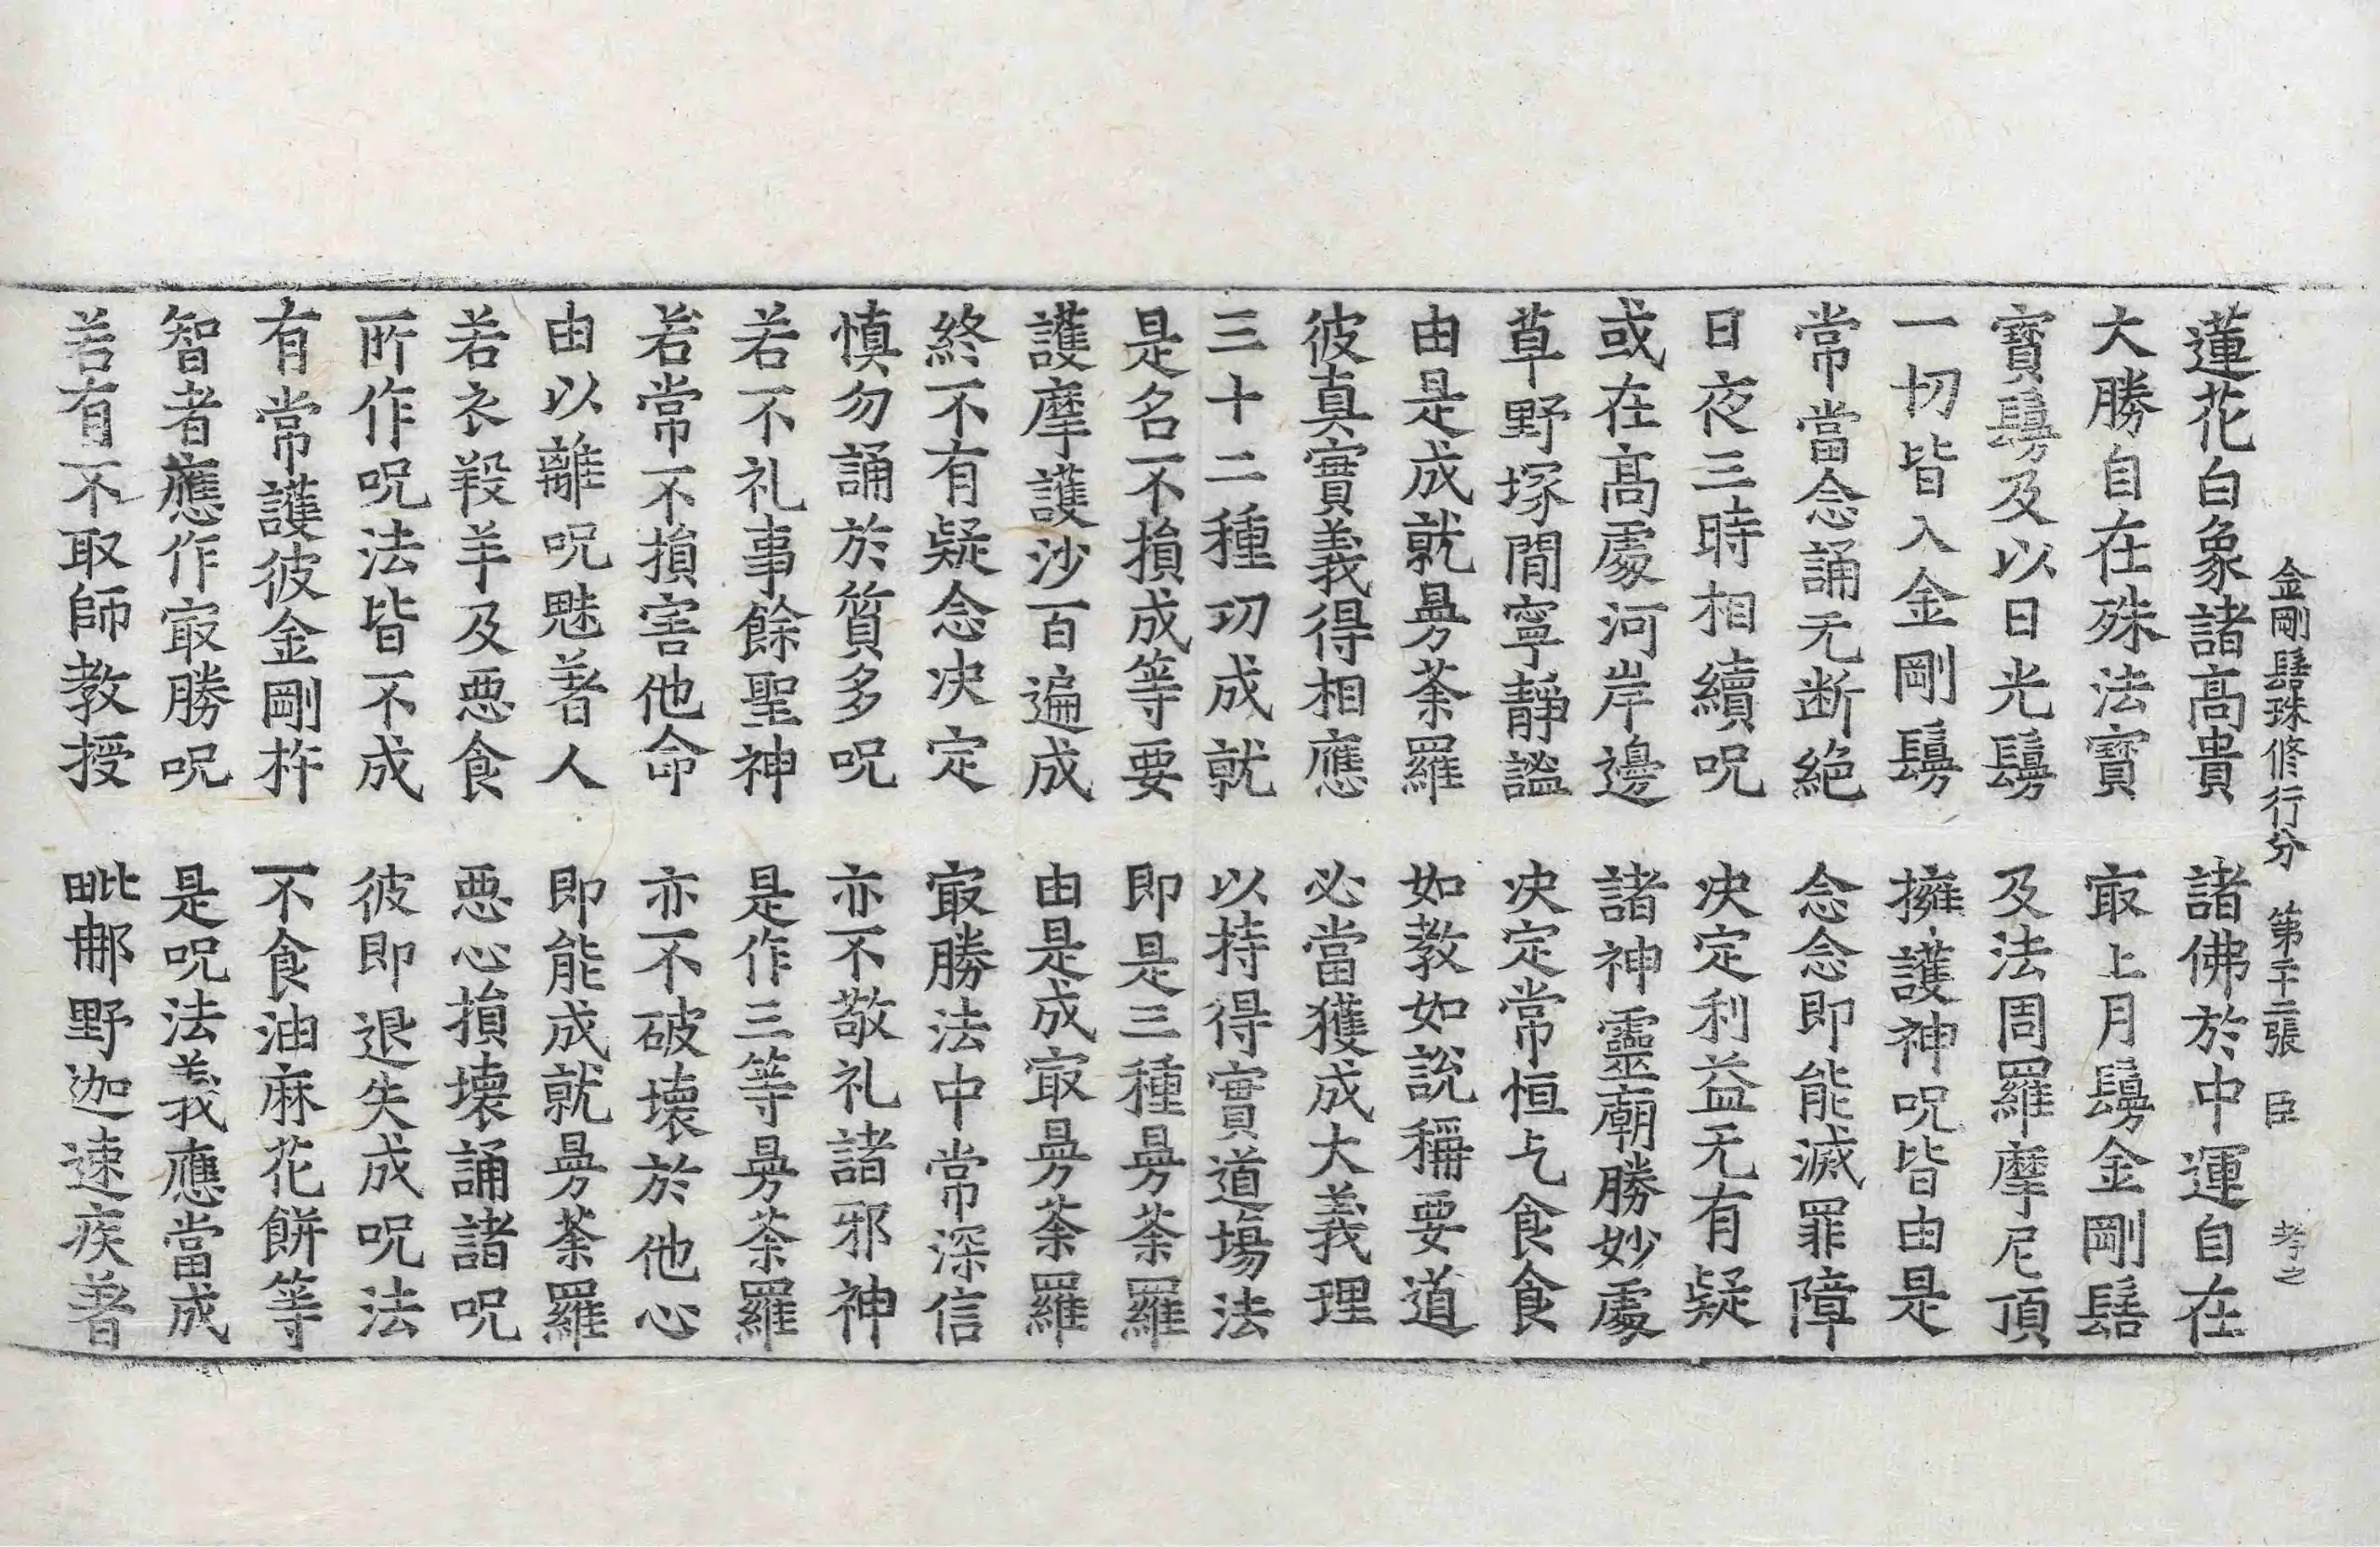 金剛髻珠修行分 第十二張 臣 孝之
蓮花白象諸高貴 諸佛於中運自在
大勝自在殊法寶 㝡上月鬘金剛髻
寶鬘及以日光鬘 及法周羅摩尼頂
一切皆入金剛鬘 擁護神呪皆由是
常當念誦无断絶 念念即能滅罪障
日夜三時相續呪 决定利益无有疑
或在髙處河岸邊 諸神靈廟勝妙處
草野塚間寧靜謐 决定常恒乞食食
由是成就曼荼羅 如教如說稱要道
彼真實義得相應 必當獲成大義理
三十二種㓛成就 以持得實道場法
是名不損成等要 即是三種曼荼羅
護摩護沙百遍成 由是成㝡曼荼羅
終不有疑念决定 㝡勝法中常深信
慎勿誦於質多呪 亦不敬礼諸邪神
若不礼事餘聖神 是作三等曼荼羅
若常不損害他命 亦不破壞於他心
由以離呪魅著人 即能成就曼荼羅
若衣羖羊及惡食 惡心損壞誦諸呪
所作呪法皆不成 彼即退失成呪法
有常護彼金剛杵 不食油麻花餅等
智者應作㝡勝呪 是呪法義應當成
若有不取師教授 毗那野迦速疾著